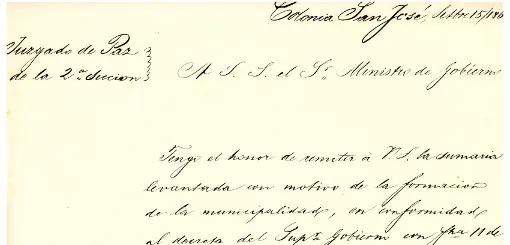 Colonia San José, Setbre 15/186
Juzgado de Paz
de la 2ª Seccion
A S. S. el Sr. Ministro de Gobierno
Tengo el honor de remitir á V. S. la sumaria
levantada con motivo de la formacion
de la municipalidad, en conformidad
al decreto del Supr. Gobierno con fha 11 de